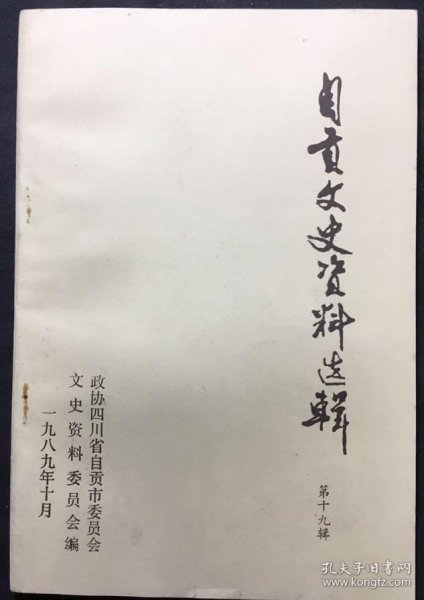 自贡文史资料选辑
第十九辑
政协四川省自贡市委员会
文史资料委员会编
一九八九年十月
孔夫子旧书网
www.kongfz.com